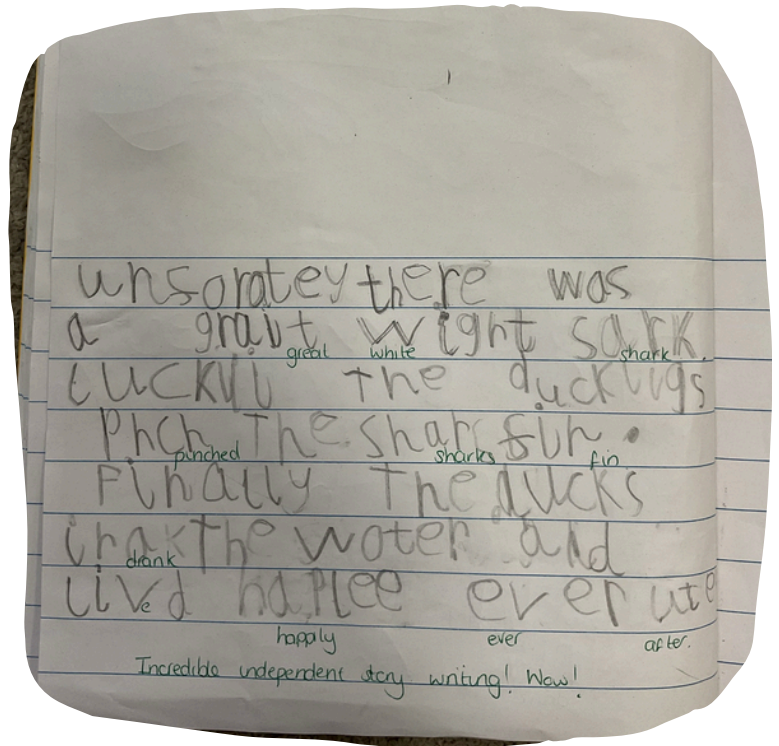 unsoratey there was
a grait wight sark.
great white shark
luckyli the duckligs
Phch The sharc fin.
pinched sharks fin
Finally The ducks
irak The woter and
drank
livd haplee ever ute
e
happily ever after.
Incredible independent story writing! Wow!